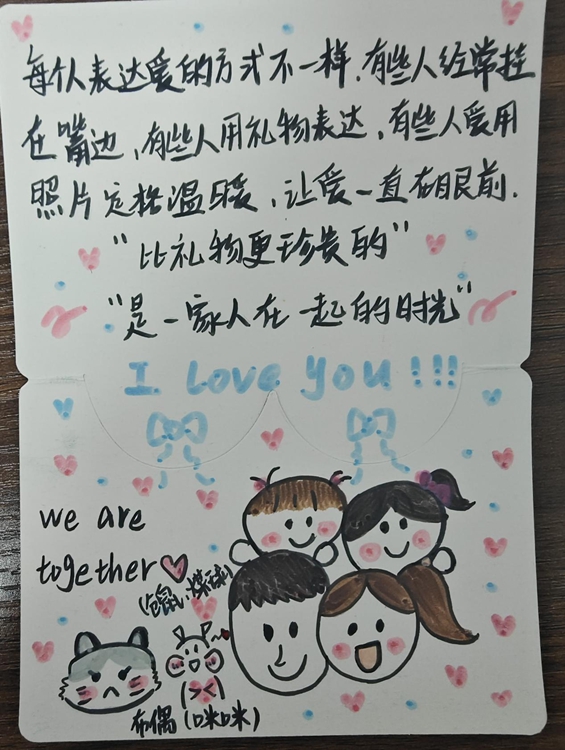 每个人表达爱的方式不一样，有些人经常挂
在嘴边，有些人用礼物表达，有些人爱用
照片定格温暖，让爱一直在眼前.
"比礼物更珍贵的"
"是一家人在一起的时光"
I Love you!!!
we are
together
(仓鼠:煤球)
布偶(咪咪)